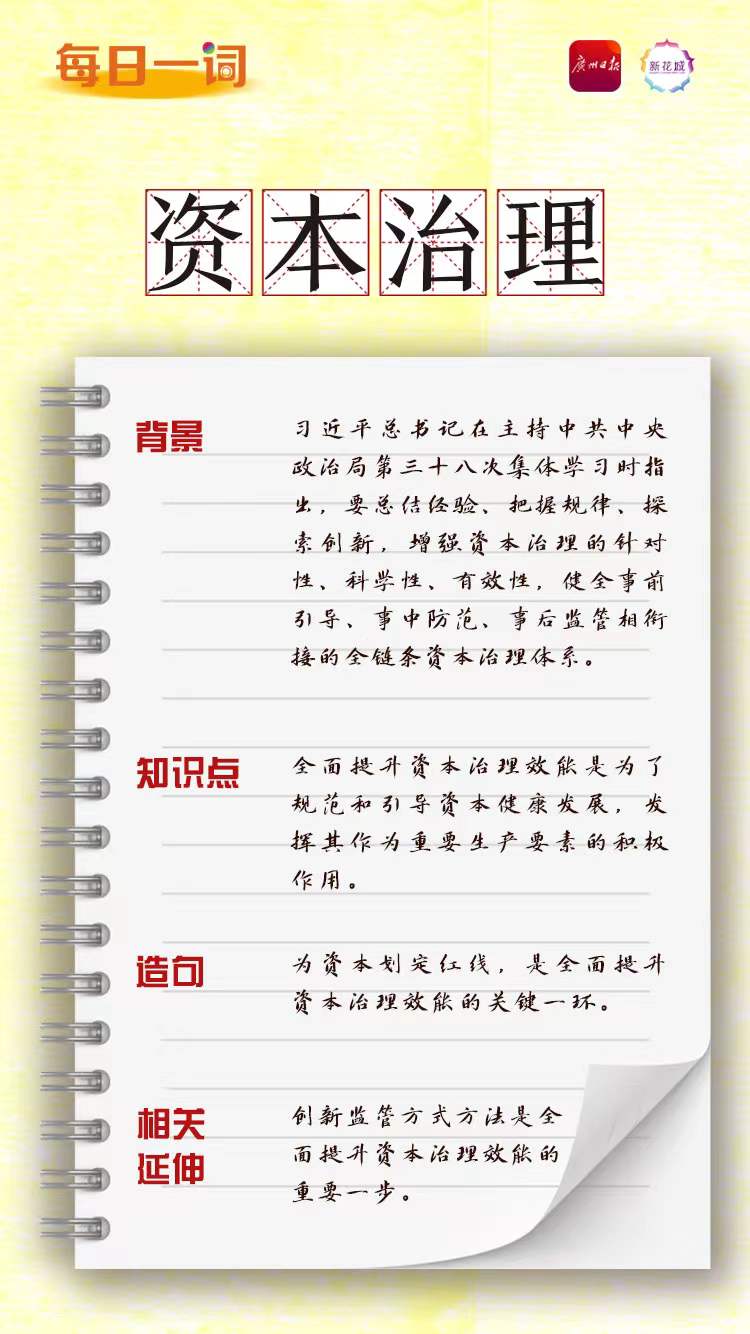 每日一词
广州日报
新花城
资本治理
背景
习近平总书记在主持中共中央
政治局第三十八次集体学习时指
出，要总结经验、把握规律、探
索创新，增强资本治理的针对
性、科学性、有效性，健全事前
引导、事中防范、事后监管相衔
接的全链条资本治理体系。
知识点
全面提升资本治理效能是为了
规范和引导资本健康发展，发
挥其作为重要生产要素的积极
作用。
造句
为资本划定红线，是全面提升
资本治理效能的关键一环。
相关
延伸
创新监管方式方法是全
面提升资本治理效能的
重要一步。